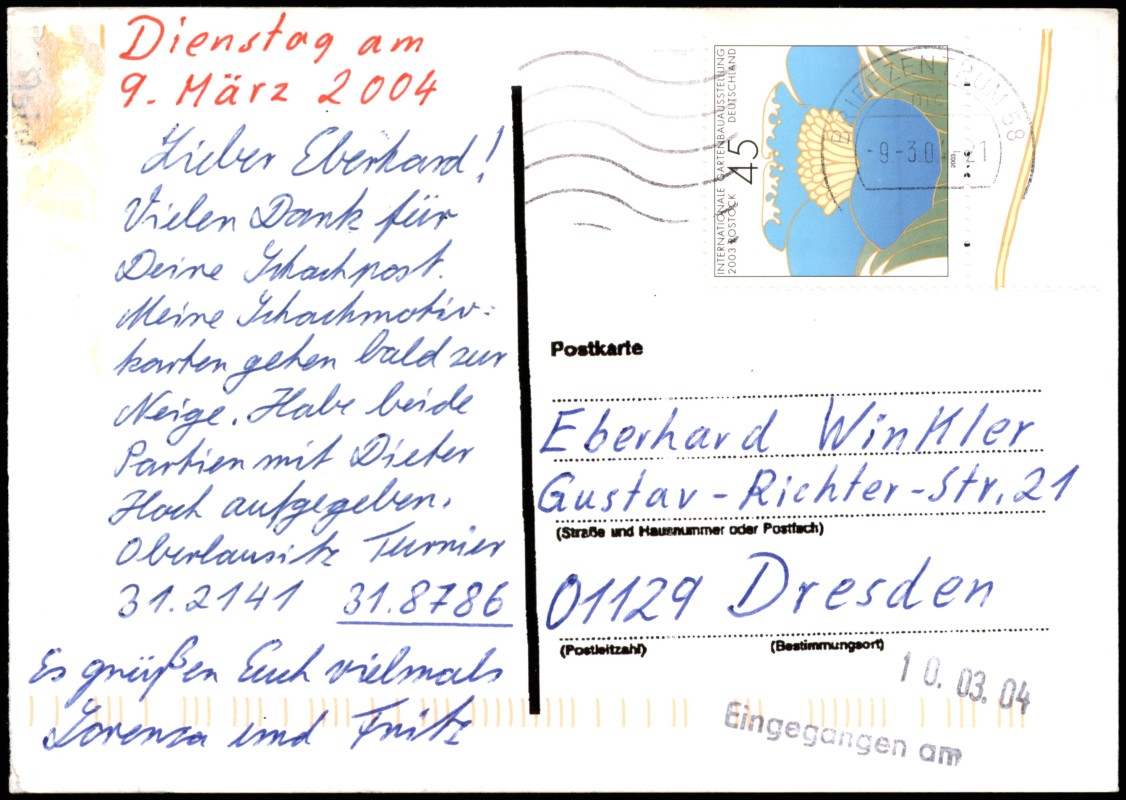 Dienstag am
9. März 2004
Lieber Eberhard!
Vielen Dank für
Deine Schachpost.
Meine Schachmotiv-
karten gehen bald zur
Neige. Habe beide
Partien mit Dieter
Hoch aufgegeben.
Oberlausitz Turnier
31.2141 31.8786
Es grüßen Euch vielmals
Lorenza und Fritz
INTERNATIONALE GARTENBAUAUSSTELLUNG
2003 ROSTOCK DEUTSCHLAND
45
2003
BRIEFZENTRUM 58
-9-3.0 -21
Postkarte
Eberhard Winkler
Gustav-Richter-Str. 21
(Straße und Hausnummer oder Postfach)
01129 Dresden
(Postleitzahl) (Bestimmungsort)
10. 03. 04
Eingegangen am